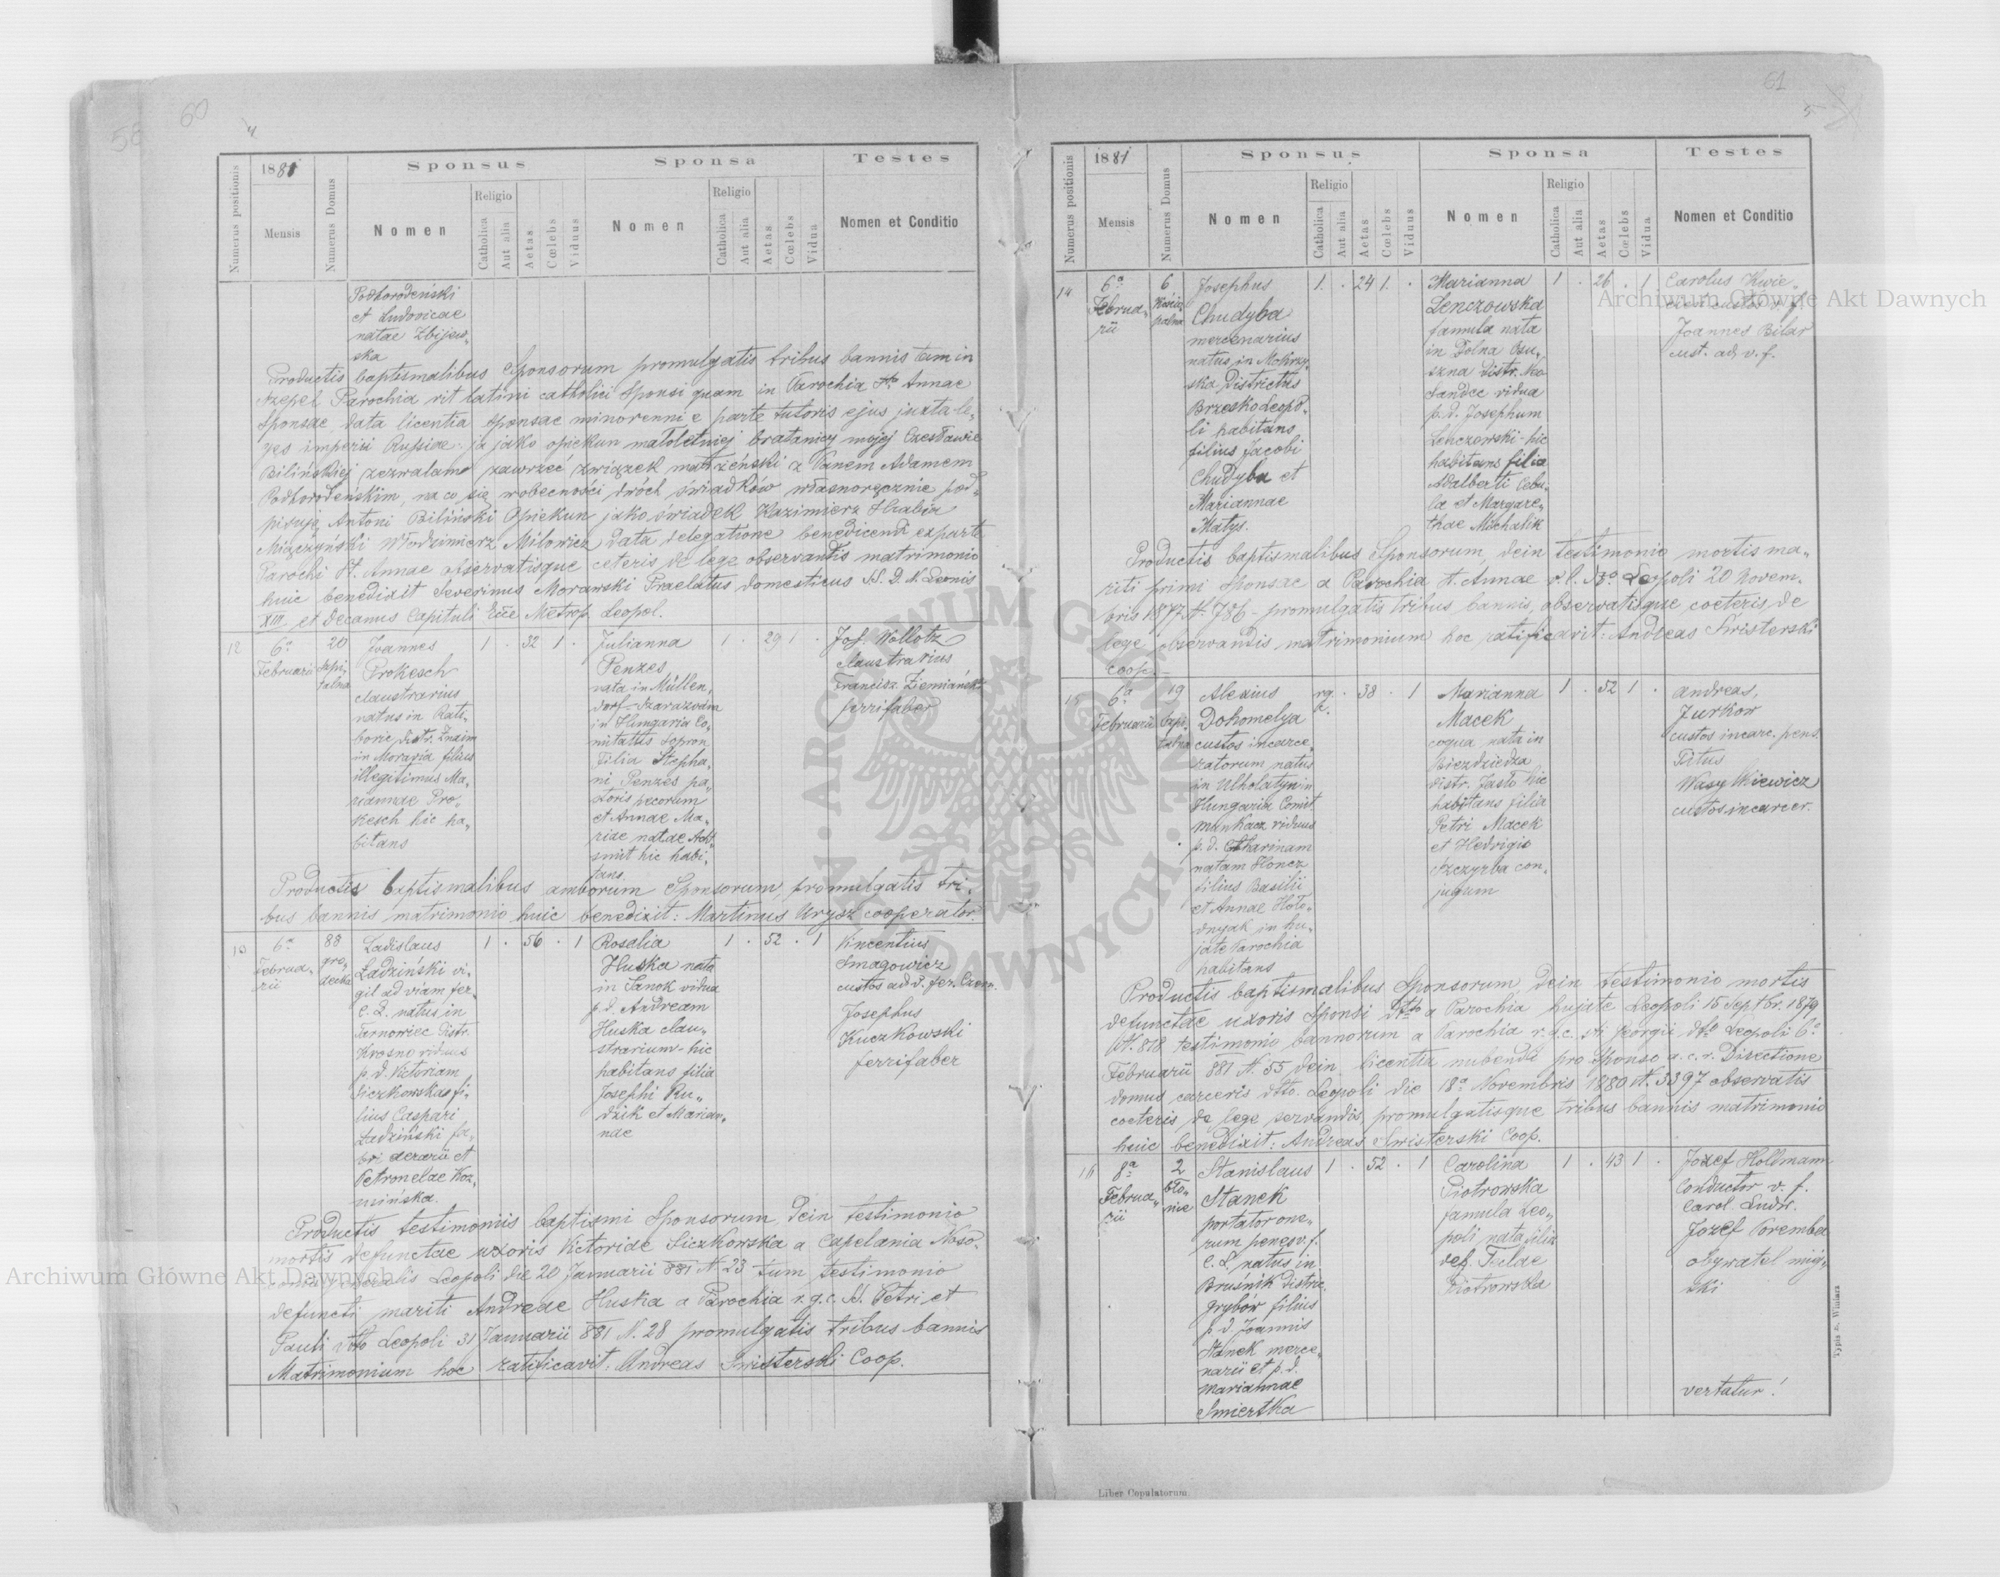 58
60
4
Numerus positionis
1881
Mensis
Numerus Domus
Sponsus
Nomen
Religio
Catholica
Aut alia
Aetas
Cœlebs
Viduus
Sponsa
Nomen
Religio
Catholica
Aut alia
Aetas
Cœlebs
Vidua
Testes
Nomen et Conditio
Podhorodeński
et Ludovicae
natae Zbijew-
ska
Productis baptismalibus Sponsorum promulgatis tribus bannis tum in
Parochia rit latini catholici Sponsi quam in Parochia Stae Annae
Sponsae, data licentia Sponsae minorenni e parte tutoris ejus juxta le-
ges imperii Russiae: ja jako opiekun małoletniej bratanicy mojej Czesławie
Bilińskiej zezwalam zawrzeć związek małżeński z Panem Adamem
Podhorodeńskim, na co się wobecności dwóch świadków własnoręcznie pod-
pisuję, Antoni Biliński Opiekun jako świadek Kazimierz Hrabia
Włodzimierz Milowicz data delegatione benedicendi ex parte
Parochi St. Annae observatisque ceteris de lege observandis matrimonio
huic benedixit Severinus Morawski Praelatus domesticus SS. D. N. Leonis
XIII et Decanus Capituli Metrop. Leopol.
12
6a
Februarii
20
Szpi-
talna
Joannes
Prokesch
claustrarius
natus in Rati-
boric, distr. Znaim
in Moravia filius
illegitimus Ma-
riannae Pro-
kesch hic ha-
bitans
1 . 32 1 .
Julianna
Penzes
nata in Müllen-
dorf-Szarazvam
in Hungaria Co-
mitatus Sopron
filia Stepha-
ni Penzes pa-
storis pecorum
et Annae Ma-
riae natae Acht-
smit hic habi-
tans.
1 . 29 1 .
Jos. Wollotz
claustrarius
Francisz. Ziemiański
ferrifaber
Productis baptismalibus amborum Sponsorum, promulgatis tri-
bus bannis matrimonio huic benedixit: Martinus Urysz cooperator.
13
6a
Februa-
rii
88
gro-
decka
Ladislaus
Ładziński vi-
gil ad viam fer.
C. L. natus in
Tarnowiec distr.
Krosno viduus
p. d. Victoriam
Siczkowska fi-
lius Caspari
Ładziński fa-
bri aerarii et
Petronelae Koz-
mińska.
1 . 56 . 1
Rosalia
Huska nata
in Sanok vidua
p. d. Andream
Huska clau-
strarium-hic
habitans filia
Josephi Ru-
dzik et Marian-
nae
1 . 52 . 1
Vincentius
Smagowicz
custos ad v. fer. Czern.
Josephus
Kuczkowski
ferrifaber
Productis testimoniis baptismi Sponsorum, dein testimonio
mortis defunctae uxoris Victoriae Siczkowska a Capelania Noso-
comii generalis Leopoli die 20 Januarii 881 N 23 tum testimonio
defuncti mariti Andreae Huska a Parochia r. g. c. SS. Petri et
Pauli dtto Leopoli 31 Januarii 881 N. 28 promulgatis tribus bannis
Matrimonium hoc ratificavit: Andreas Swisterski Coop.
61
5
Numerus positionis
1881
Mensis
Numerus Domus
Sponsus
Nomen
Religio
Catholica
Aut alia
Aetas
Cœlebs
Viduus
Sponsa
Nomen
Religio
Catholica
Aut alia
Aetas
Cœlebs
Vidua
Testes
Nomen et Conditio
14
6a
Februa-
rii
6
Josephus
Chudyba
mercenarius
natus in Mokrzy-
ska districtus
Brzesko Leopo-
li habitans
filius Jacobi
Chudyba et
Mariannae
Matys.
1. . 24 1. .
Marianna
Lenczowska
famula nata
in Dolna Osu-
szna distr. Neo-
Sandec vidua
p. d. Josephum
Lenczowski-hic
habitans filia
Adalberti Cebu-
la et Margare-
thae Michalik
1 . 26 . 1
Carolus Kwie-
cień custos v. f.
Joannes Bilar
cust. ad v. f.
Productis baptismalibus Sponsorum, dein testimonio mortis ma-
riti primi Sponsae a Parochia St. Annae r. l. Leopoli 20 Novem-
bris 1877 N 786 - promulgatis tribus bannis, observatisque coeteris de
lege observandis matrimonium hoc ratificavit: Andreas Swisterski
coop.
15
6a
Februarii
19
Szpi-
talna
Alexius
Dohomelya
custos incarce-
ratorum natus
in Ulholatyn in
Hungaria Comit.
Munkacz viduus
p. d. Catharinam
natam Honcz
filius Basilii
et Annae Holo-
dnyak in hu-
jate Parochia
habitans
rg. . 38 . 1
k.
Marianna
Macek
coqua, nata in
Biezdziedza
distr. Jasło hic
habitans filia
Petri Macek
et Hedvigis
Szczyrba con-
jugum
1 . 52 1 .
Andreas,
Jurkow
custos incarc. pens.
Titus
Wasylkiewicz
custos incarcer.
Productis baptismalibus Sponsorum, dein testimonio mortis
defunctae uxoris Sponsi dtto a Parochia hujate Leopoli 15 Septbr. 1879
N. 818 testimonio bannorum a Parochia r. g. c. sti Georgii dto Leopoli 6a
Februarii 881 N. 55 dein licentia nubendi pro Sponso a. c. r. Directione
domus carceris dtto. Leopoli die 18a Novembris 1880 N. 3397 observatis
coeteris de lege servandis, promulgatisque tribus bannis matrimonio
huic benedixit: Andreas Swisterski Coop.
16
8a
Februa-
rii
2
Bło-
nie
Stanislaus
Stanek
portator one-
rum penes v. f.
C. L. natus in
Bruśnik distric.
Grybów filius
p. d. Joannis
Stanek merce-
narii et p. d.
Mariannae
Smiertka
1 . 52 . 1
Carolina
Piotrowska
famula Leo-
poli nata filia
def. Teclae
Piotrowska
1 . 43 1 .
Jozef Hollmann
conductor v. f.
Carol. Ludv.
Jozef Poremba
obywatel miej-
ski
vertatur!
Typis A. Winiarz
Liber Copulatorum
Archiwum Główne Akt Dawnych
Archiwum Główne Akt Dawnych
ARCHIWUM GŁÓWNE AKT DAWNYCH